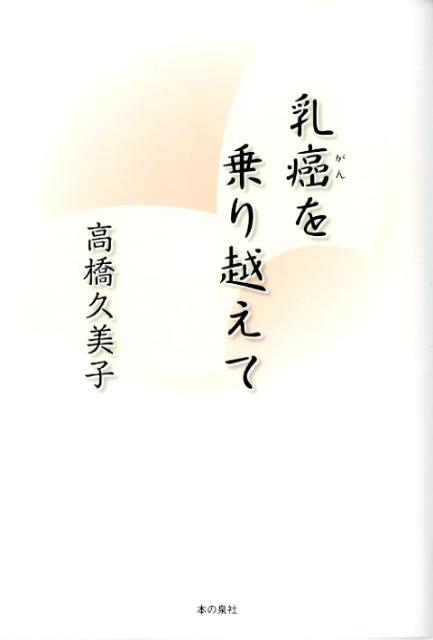 乳癌を
がん
乗り越えて
高橋久美子
本の泉社